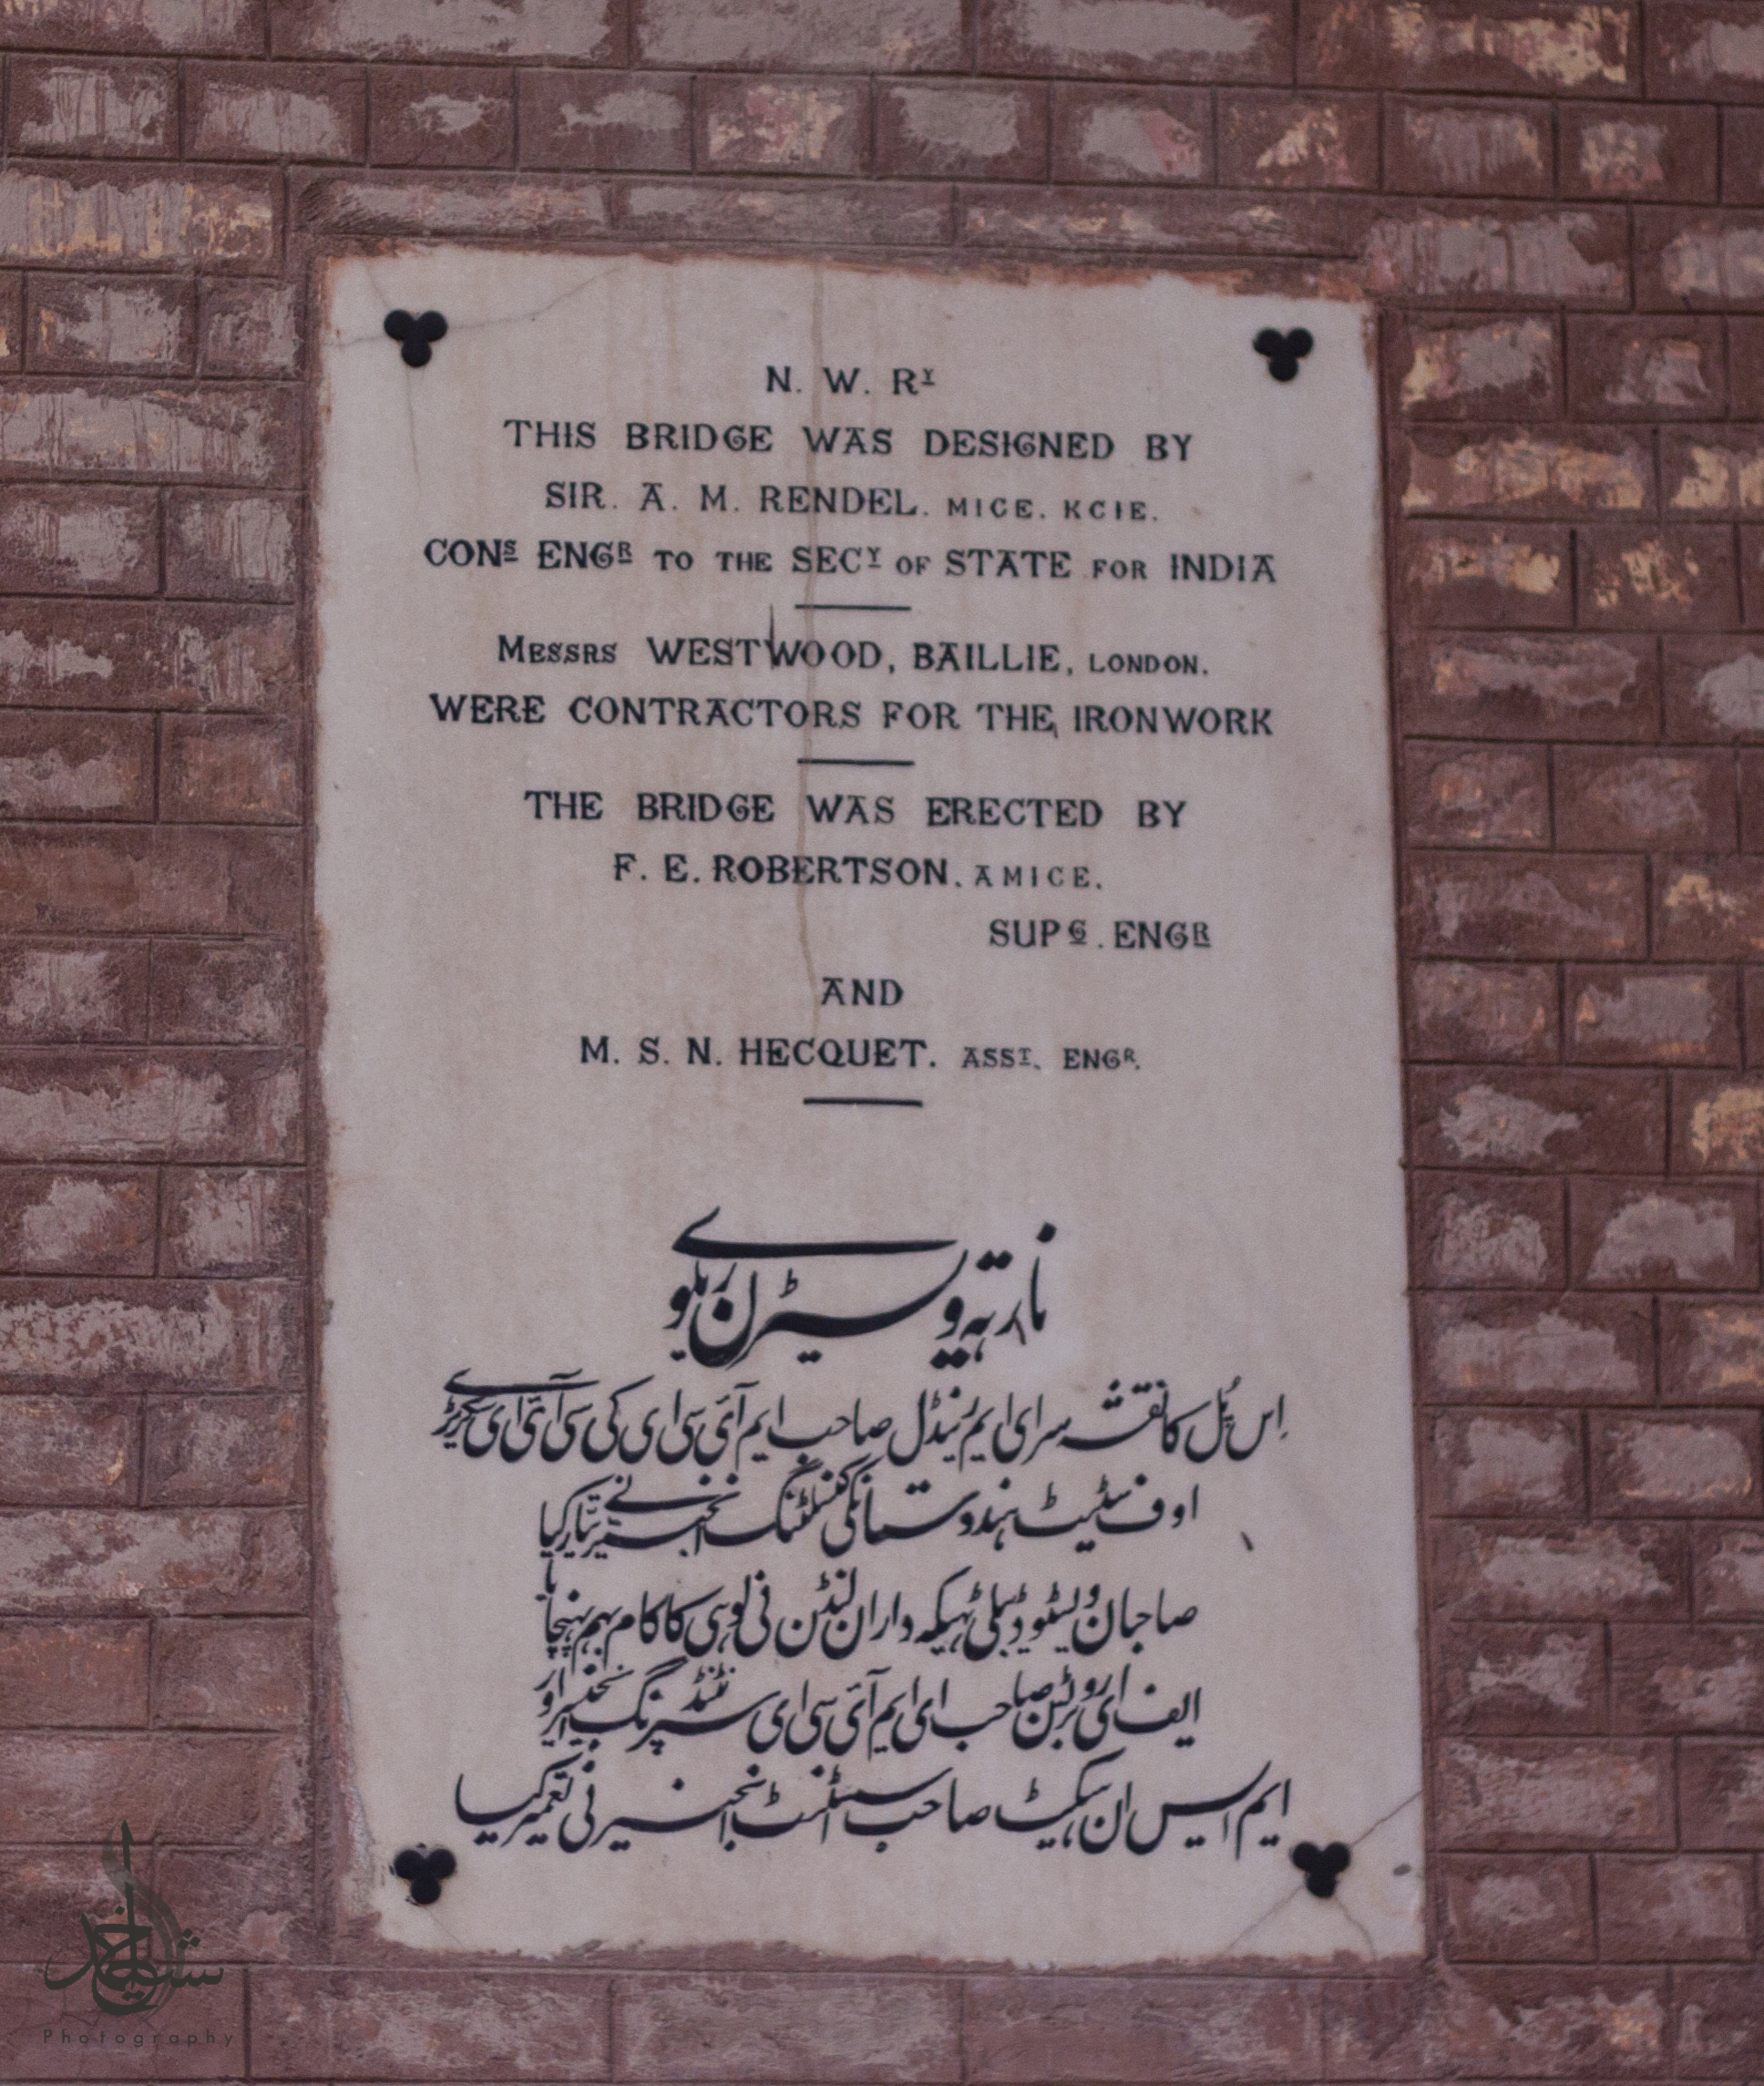 N. W. RY
THIS BRIDGE WAS DESIGNED BY
SIR. A. M. RENDEL. MICE. KCIE.
CONS ENGR TO THE SECY OF STATE FOR INDIA
MESSRS WESTWOOD, BAILLIE, LONDON.
WERE CONTRACTORS FOR THE IRONWORK
THE BRIDGE WAS ERECTED BY
F. E. ROBERTSON. AMICE.
SUPG. ENGR
AND
M. S. N. HECQUET. ASST. ENGR.
نارتہ ویسٹرن ریلوے
اِس پُل کا نقشہ سر ای ایم رینڈل صاحب ایم آئی سی ای کی سی آئی ای سکریٹری
اوف سٹیٹ ہندوستانکی کنسلٹنگ انجنیر نے تیار کیا
صاحبان ویسٹوڈ بیلی ٹہیکہ داران لنڈن نی لوہی کا کام بہم پہنچایا
ایف ای روبرٹسن صاحب ای ایم آئی سی ای سپرنٹنڈنگ انجنیر اور
ایم ایس ان ہیکیٹ صاحب اسسٹنٹ انجنیر نی تعمیر کیا
Photography